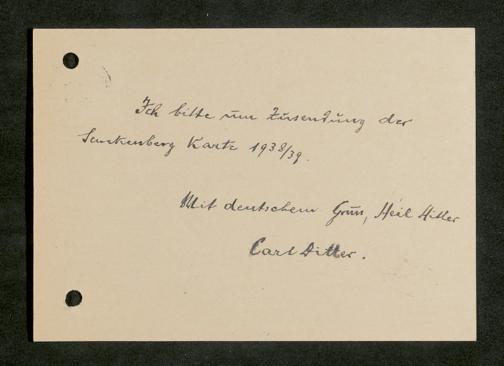 Ich bitte um Zusendung der
Senckenberg Karte 1938/39.
Mit deutschem Gruss, Heil Hitler
Carl Ditter.